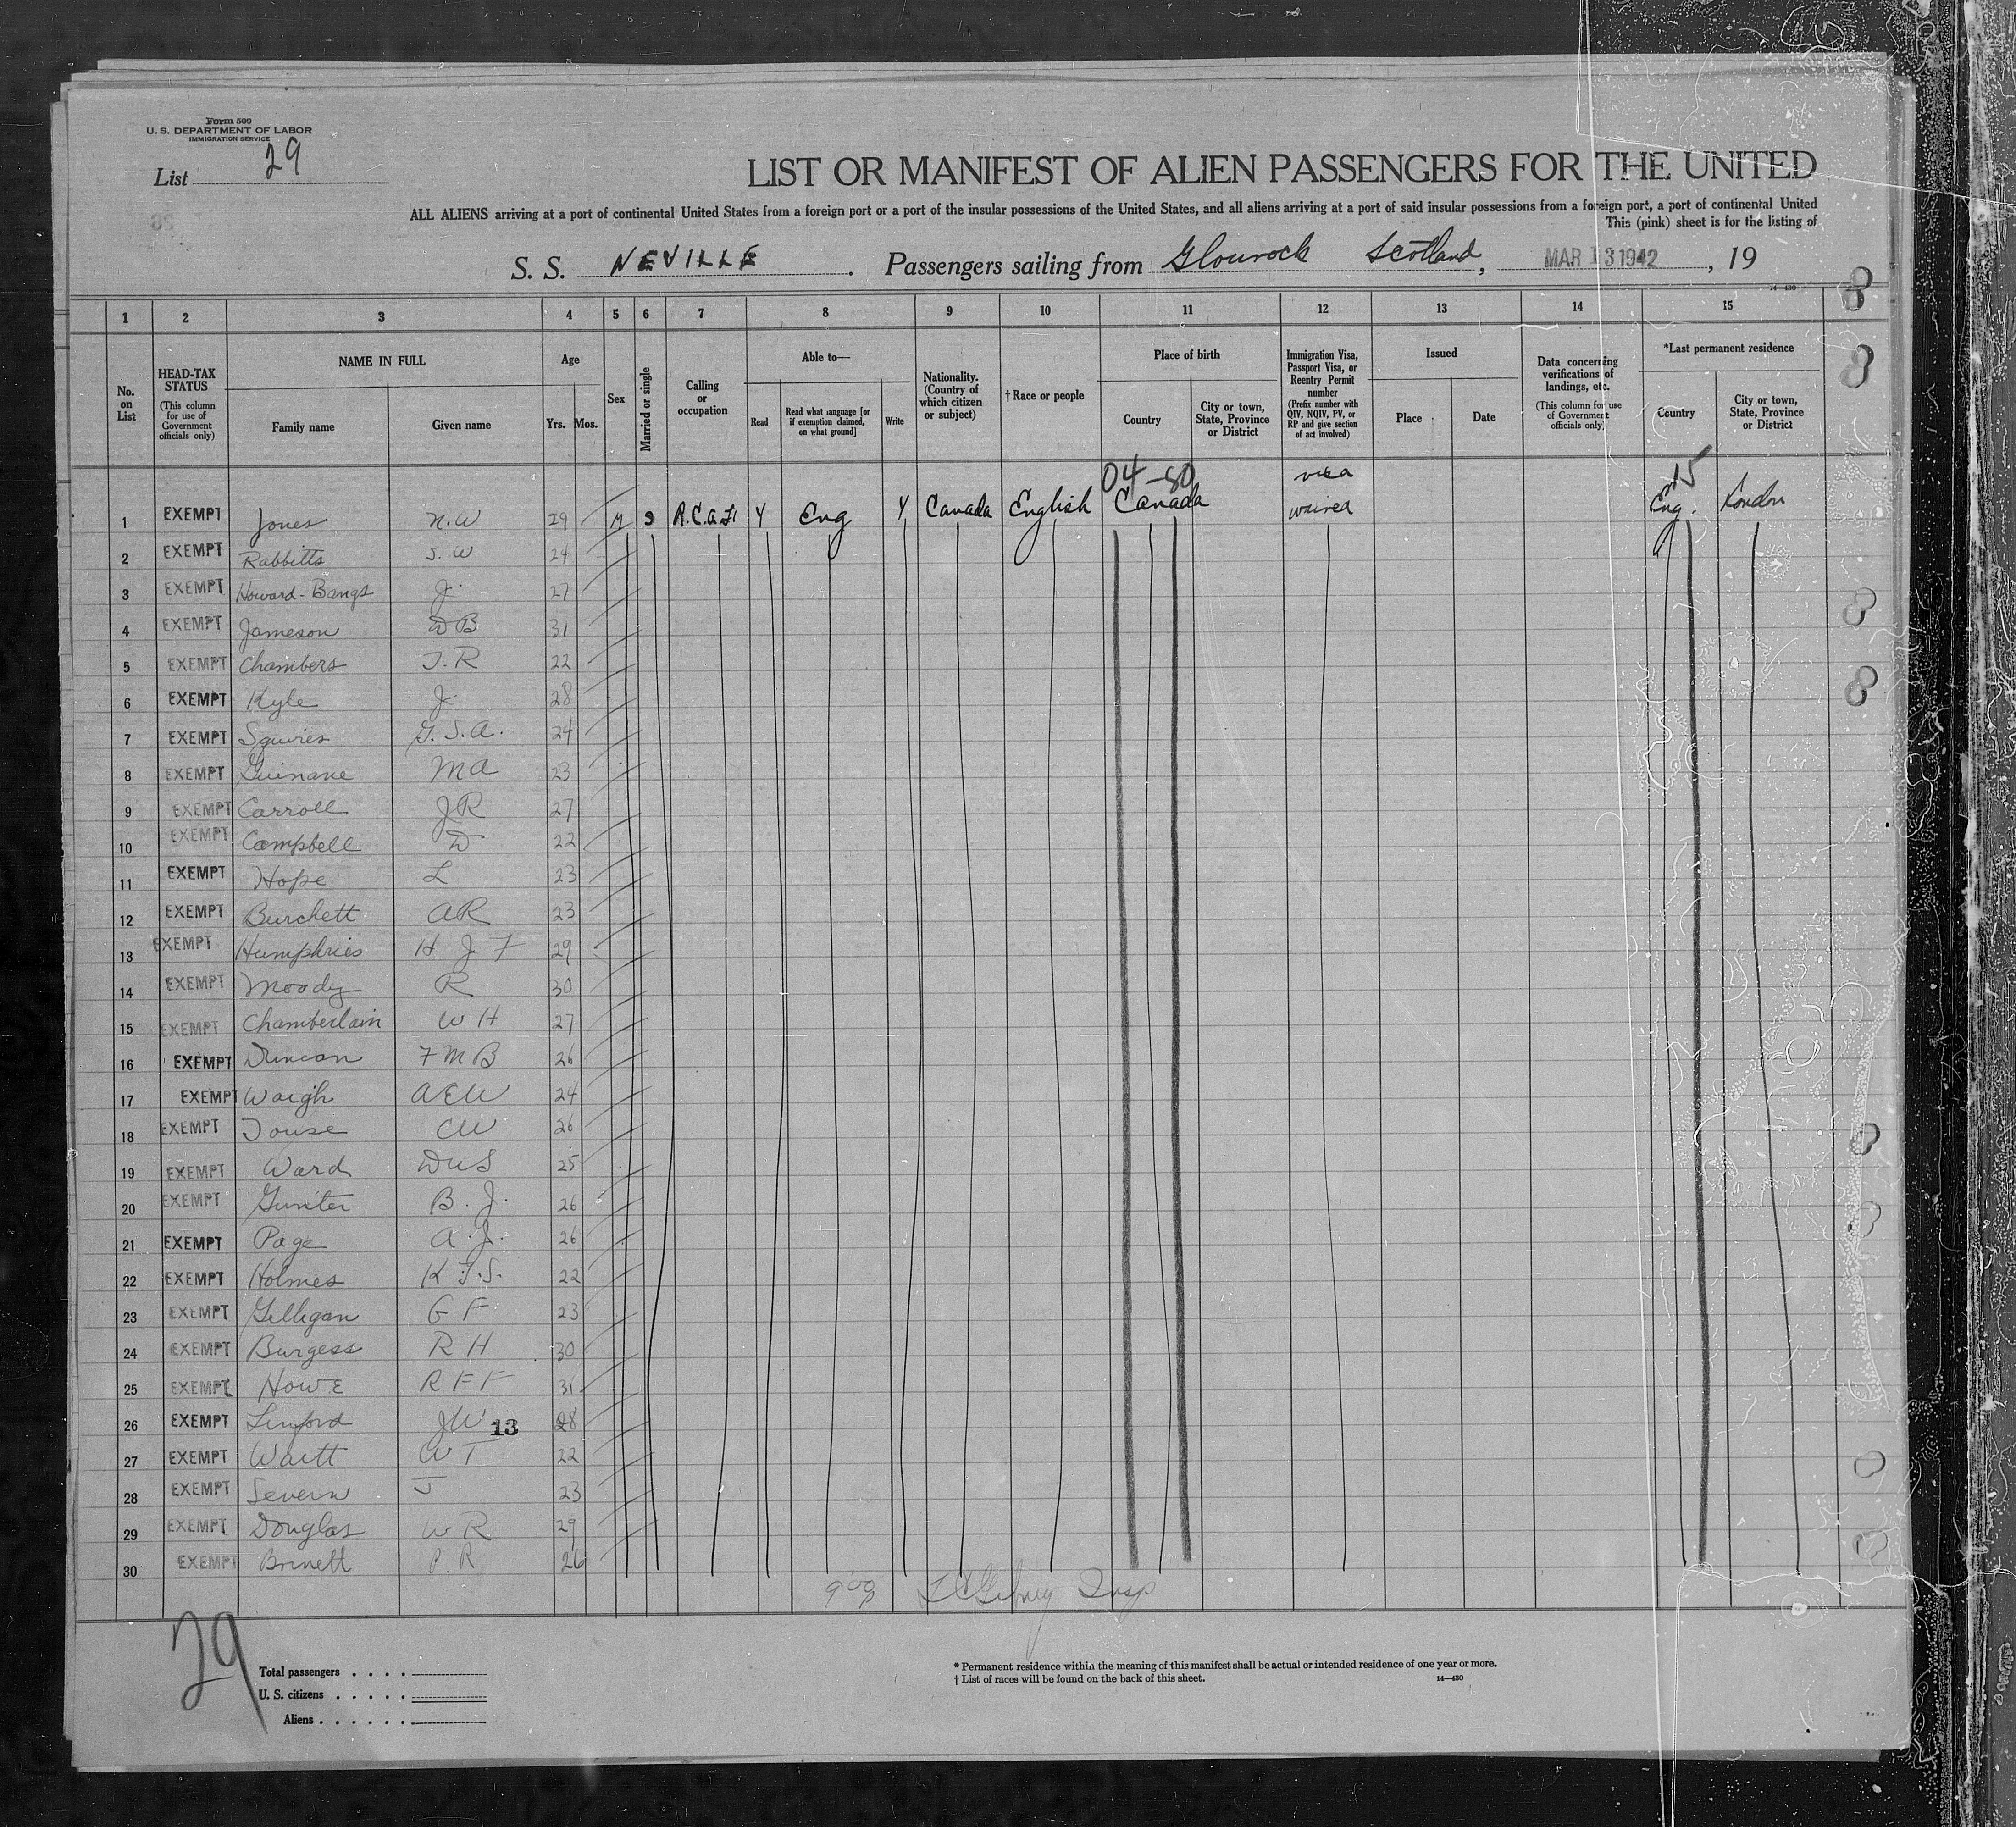 Form 500
U. S. DEPARTMENT OF LABOR
IMMIGRATION SERVICE
List 29
LIST OR MANIFEST OF ALIEN PASSENGERS FOR THE UNITED
ALL ALIENS arriving at a port of continental United States from a foreign port or a port of the insular possessions of the United States, and all aliens arriving at a port of said insular possessions from a foreign port, a port of continental United
This (pink) sheet is for the listing of
S. S. NEVILLE. Passengers sailing from Glourock Scotland, MAR 13 1942, 19
14—430
1 2 3 4 5 6 7 8 9 10 11 12 13 14 15
No. on List
HEAD-TAX STATUS
(This column for use of Government officials only)
NAME IN FULL
Family name
Given name
Age
Yrs. Mos.
Sex
Married or single
Calling or occupation
Able to—
Read
Read what language [or if exemption claimed, on what ground]
Write
Nationality. (Country of which citizen or subject)
†Race or people
Place of birth
Country
City or town, State, Province or District
Immigration Visa, Passport Visa, or Reentry Permit number
(Prefix number with QIV, NQIV, PV, or RP and give section of act involved)
Issued
Place
Date
Data concerning verifications of landings, etc.
(This column for use of Government officials only)
*Last permanent residence
Country
City or town, State, Province or District
04-80 visa 15
1 EXEMPT Jones N.W 29 M S Y Eng Y Canada English Canada waived Eng. London
2 EXEMPT Rabbitts S. W 24
3 EXEMPT Howard-Bangs J. 27
4 EXEMPT Jameson DB 31
5 EXEMPT Chambers J.R 22
6 EXEMPT Kyle J. 28
7 EXEMPT Squires G.S.A. 24
8 EXEMPT Guinane MA 23
9 EXEMPT Carroll JR 27
10 EXEMPT Campbell D 22
11 EXEMPT Hope L 23
12 EXEMPT Burchett AR 23
13 EXEMPT Humphries H J F 29
14 EXEMPT Moody R 30
15 EXEMPT Chamberlain WH 27
16 EXEMPT Duncan FMB 26
17 EXEMPT Waigh AEW 24
18 EXEMPT Touse CW 26
19 EXEMPT Ward 25
20 EXEMPT Gunter B. J. 26
21 EXEMPT Page A. J. 26
22 EXEMPT Holmes 22
23 EXEMPT Gilligan G F 23
24 EXEMPT Burgess R H 30
25 EXEMPT Howe RFF 31
26 EXEMPT Linford JW 13 28
27 EXEMPT Waitt WT 22
28 EXEMPT Severn J 23
29 EXEMPT Douglas WR 29
30 EXEMPT P.R 26
Insp
29
Total passengers . . . .
U. S. citizens . . . . .
Aliens . . . . . .
* Permanent residence within the meaning of this manifest shall be actual or intended residence of one year or more.
† List of races will be found on the back of this sheet.
14—430